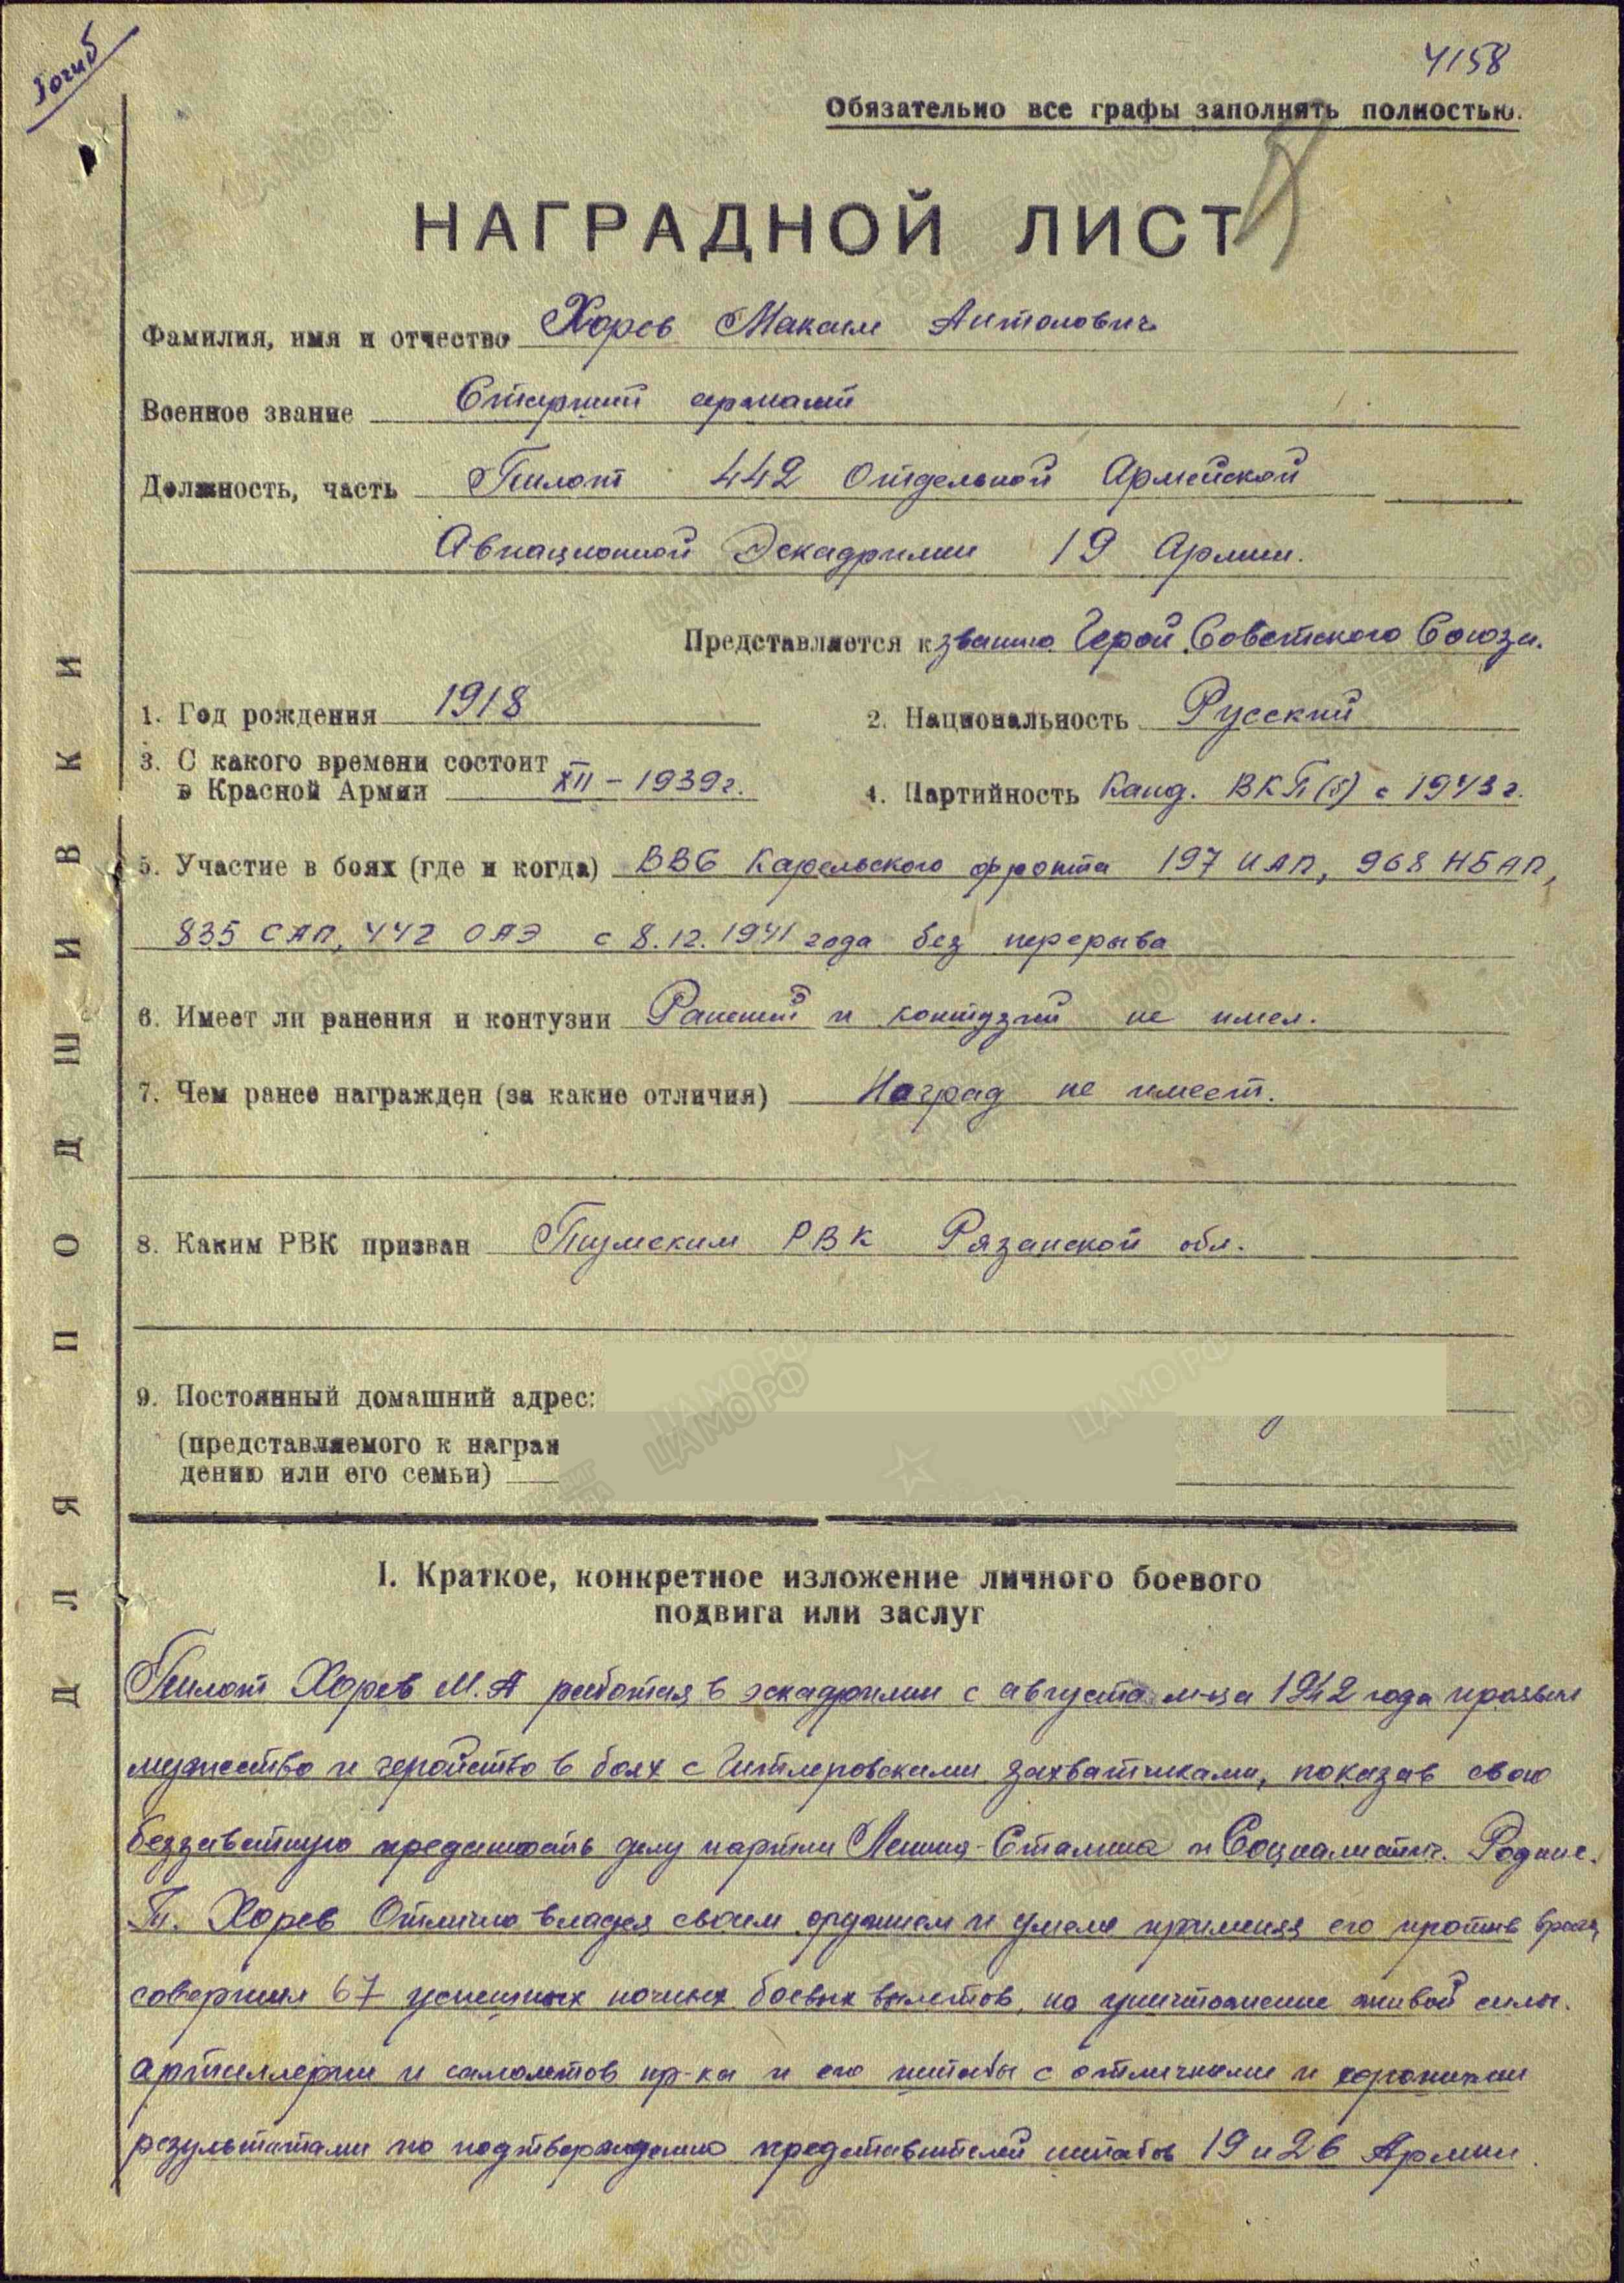 Погиб
4158
Обязательно все графы заполнять полностью.
НАГРАДНОЙ ЛИСТ
Фамилия, имя и отчество Хорев Максим Антонович
Военное звание Старший сержант
Должность, часть Пилот 442 Отдельной Армейской
Авиационной Эскадрилии 19 Армии.
Представляется к званию Герой Советского Союза.
1. Год рождения 1918
2. Национальность Русский
3. С какого времени состоит
в Красной Армии XII – 1939г.
4. Партийность Канд. ВКП(б) с 1943 г.
5. Участие в боях (где и когда) ВВС Карельского фронта 197 ИАП, 968 НБАП,
835 САП, 442 ОАЭ с 8.12.1941 года без перерыва
6. Имеет ли ранения и контузии Ранений и контузий не имел.
7. Чем ранее награжден (за какие отличия) Наград не имеет.
8. Каким РВК призван Тумским РВК Рязанской обл.
9. Постоянный домашний адрес:
(представляемого к награж
дению или его семьи)
ДЛЯ ПОДШИВКИ
I. Краткое, конкретное изложение личного боевого
подвига или заслуг
Пилот Хорев М.А работая в эскадрилии с августа м-ца 1942 года проявил
мужество и геройство в боях с Гитлеровскими захватчиками, показав свою
беззаветную преданность делу партии Ленина-Сталина и Социалистич. Родине.
Т. Хорев Отлично владея своим оружием и умело применяя его против врага,
совершил 67 успешных ночных боевых вылетов, на уничтожение живой силы.
артиллерии и самолетов пр-ка и его штабы с отличными и хорошими
результатами по подтверждению представителей штабов 19 и 26 Армии.
ЦАМО РФ